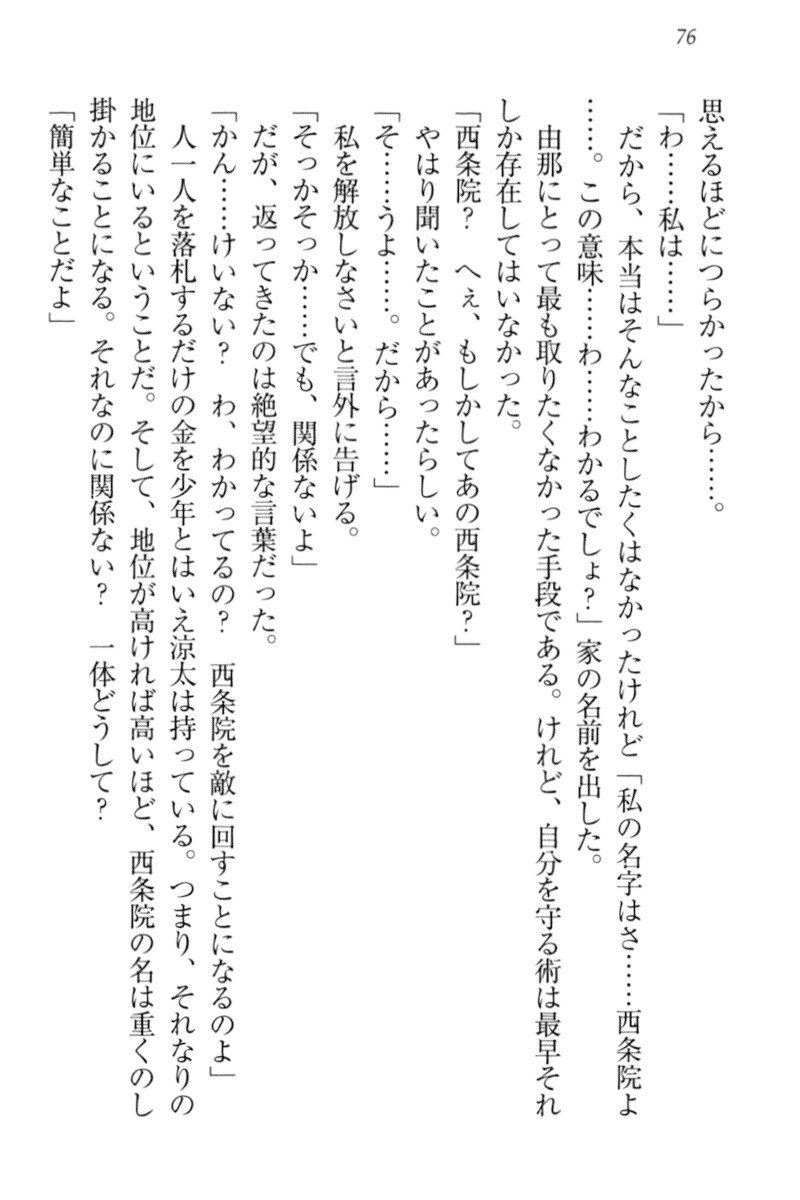 76
思えるほどにつらかったから……。
「わ……私は……」
だから、本当はそんなことしたくはなかったけれど「私の名字はさ……西条院よ
……。この意味……わ……わかるでしょ?」家の名前を出した。
由那にとって最も取りたくなかった手段である。けれど、自分を守る術は最早それ
しか存在してはいなかった。
「西条院?　へぇ、もしかしてあの西条院?」
やはり聞いたことがあったらしい。
「そ……うよ……。だから……」
私を解放しなさいと言外に告げる。
「そっかそっか……でも、関係ないよ」
だが、返ってきたのは絶望的な言葉だった。
「かん……けいない?　わ、わかってるの?　西条院を敵に回すことになるのよ」
人一人を落札するだけの金を少年とはいえ涼太は持っている。つまり、それなりの
地位にいるということだ。そして、地位が高ければ高いほど、西条院の名は重くのし
掛かることになる。それなのに関係ない?　一体どうして?
「簡単なことだよ」